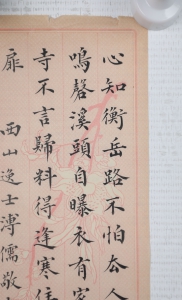 心知衡岳路不怕厺人
鳴磬溪頭自曝衣有家
寺不言歸料得逢寒住
扉 西山逸士溥儒敬